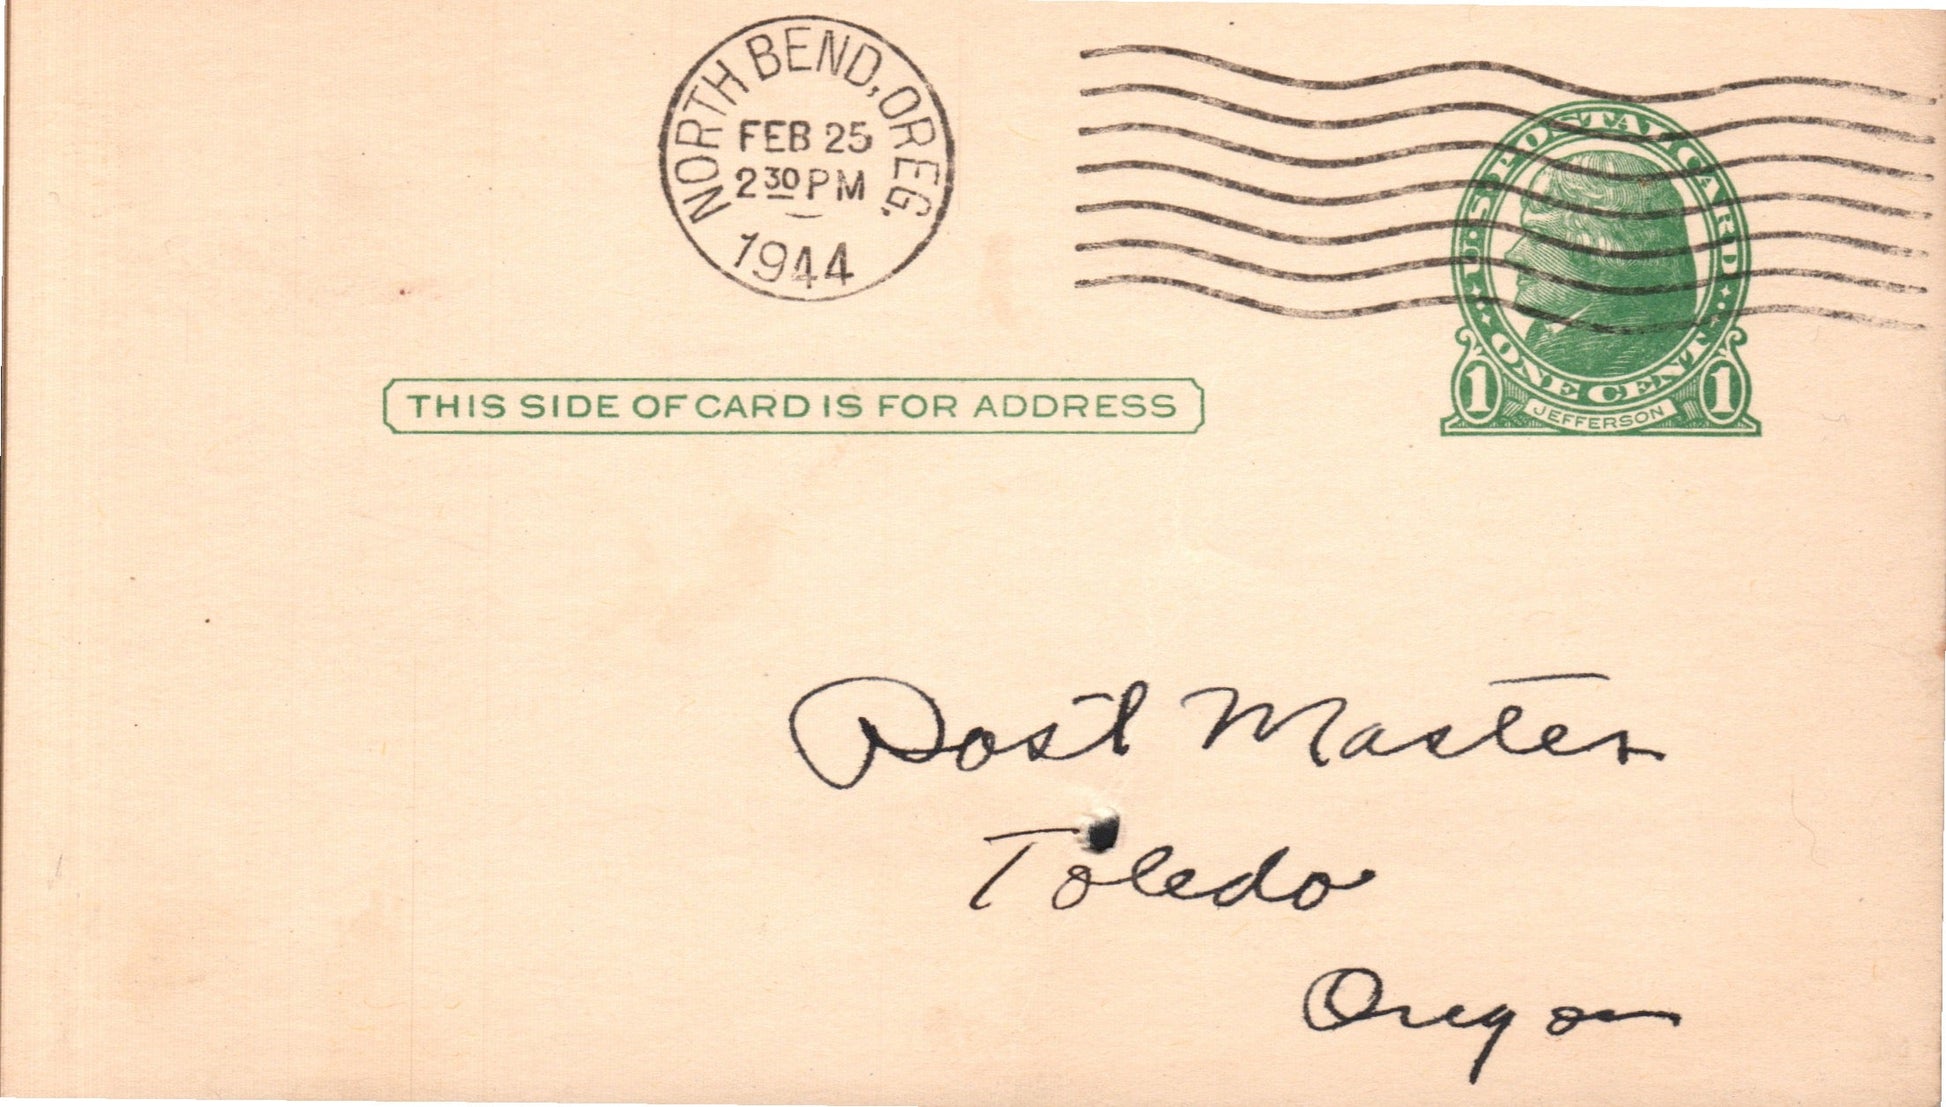 NORTH BEND, OREG.
FEB 25
2 30 PM
1944
U.S. POSTAL CARD
ONE CENT
1 JEFFERSON 1
THIS SIDE OF CARD IS FOR ADDRESS
Post Master
Toledo
Oregon